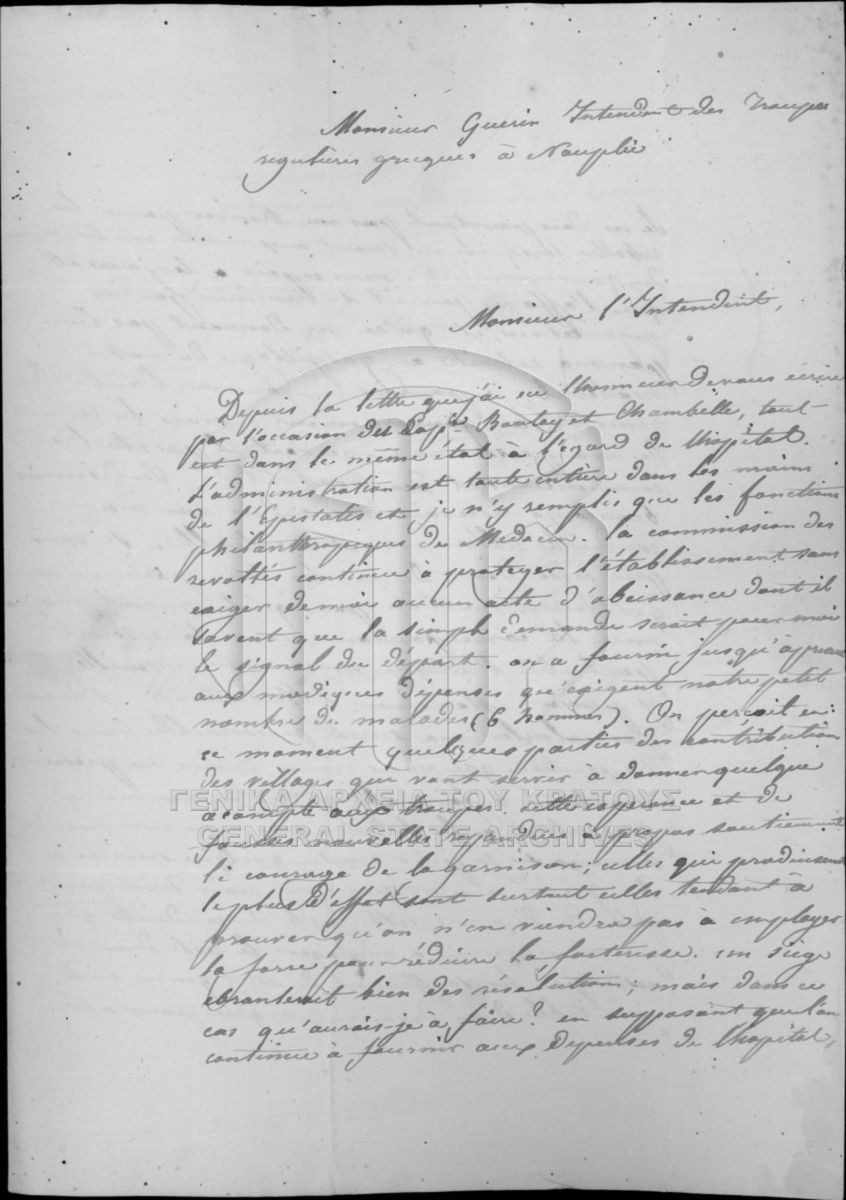 Monsieur Guerin Intendant des Troupes
regulières grecques à Nauplie
Monsieur l'Intendant,
Depuis la lettre que j'ai eu l'honneur de vous écrire
par l'occasion du Cap.ne et Chambelle, tout
est dans le même état à l'égard de l'hôpital.
L'administration est toute entière dans les mains
de l'Epistates et je n'y remplis que les fonctions
philanthropiques de Medecin. la commission des
revoltés continue à proteger l'établissement sans
exiger de moi aucun acte d'obeissance dont il
savent que la simple demande serait pour moi
le signal du départ. on a fourni jusqu'à present
aux modiques dépenses qu'exigent notre petit
nombre de malades (6 hommes). On perçoit en
ce moment quelques parties des contribution
des villages qui vont servir à donner quelque
acompte aux troupes. cette esperance et de
fausses nouvelles repandues à propos soutiennent
le courage de la garnison; celles qui produisent
le plus d'effet sont surtout celles tendant à
prouver qu'on n'en viendra pas à employer
la force pour réduire la forteresse. un siège
ebranlerait bien des résolutions; mais dans ce
cas qu'aurais-je à faire? en supposant que l'on
continue à fournir aux depenses de l'hopital,
ΓΕΝΙΚΑ ΑΡΧΕΙΑ ΤΟΥ ΚΡΑΤΟΥΣ
GENERAL STATE ARCHIVES